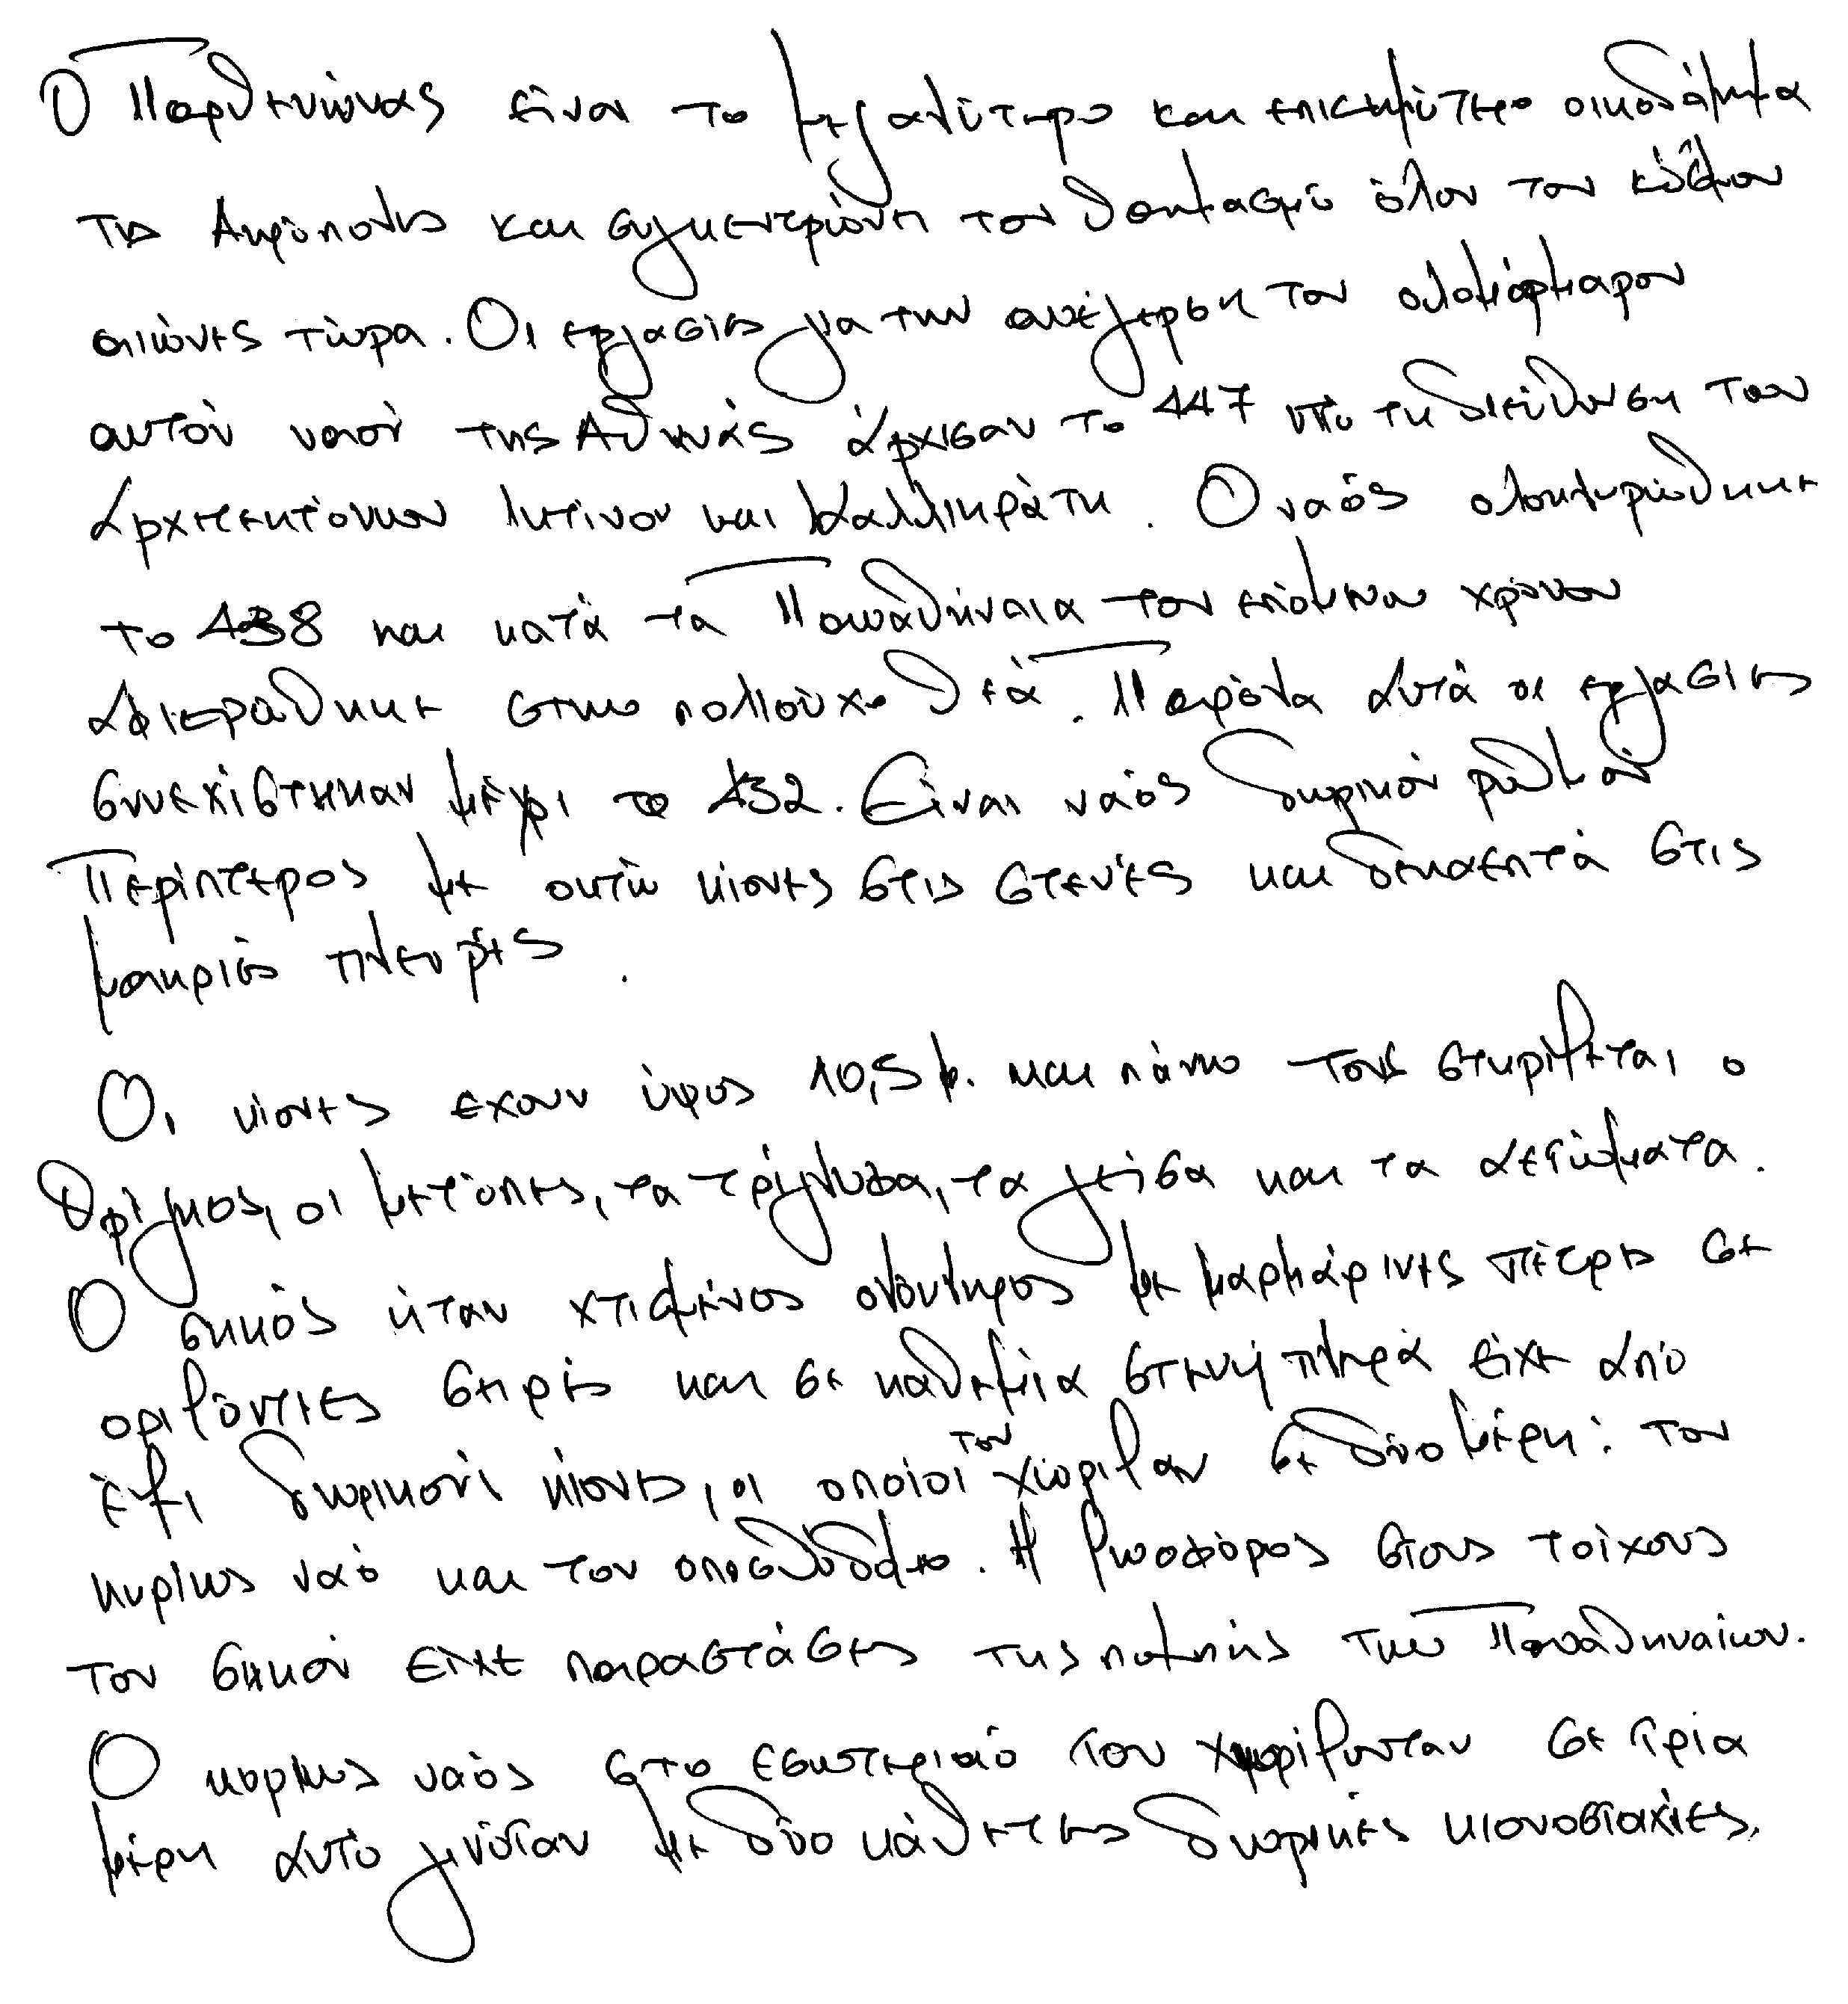 Ο Παρθενώνας είναι το μεγαλύτερο και επισημότερο οικοδόμημα
της Ακρόπολης και συγκεντρώνει τον θαυμασμό όλου του κόσμου
αιώνες τώρα. Οι εργασίες για την ανέγερση του ολομάρμαρου
αυτού ναού της Αθηνάς άρχισαν το 447 υπό τη διεύθυνση των
αρχιτεκτόνων Ικτίνου και Καλλικράτη. Ο ναός ολοκληρώθηκε
το 438 και κατά τα Παναθήναια του επόμενου χρόνου
αφιερώθηκε στην πολιούχο θεά. Παρόλα αυτά οι εργασίες
συνεχίστηκαν μέχρι το 432. Είναι ναός δωρικού ρυθμού
Περίπτερος με οκτώ κίονες στις στενές και δεκαεπτά στις
μακριές πλευρές.
Οι κίονες έχουν ύψος 10,5 μ. και πάνω τους στηρίζεται ο
θριγκός, οι μετόπες, τα τρίγλυφα, τα γείσα και τα αετώματα.
Ο σηκός ήταν χτισμένος ολόκληρος με μαρμάρινες πέτρες σε
οριζόντιες σειρές και σε καθεμία στενή πλευρά είχε από
έξι δωρικούς κίονες, οι οποίοι τον χώριζαν σε δύο μέρη: τον
κυρίως ναό και τον οπισθόδομο. Η ζωοφόρος στους τοίχους
του σηκού είχε παραστάσεις της πομπής των Παναθηναίων.
Ο κυρίως ναός στο εσωτερικό του χωρίζονταν σε τρία
μέρη αυτό γινόταν με δύο κάθετες δωρικές κιονοστοιχίες.